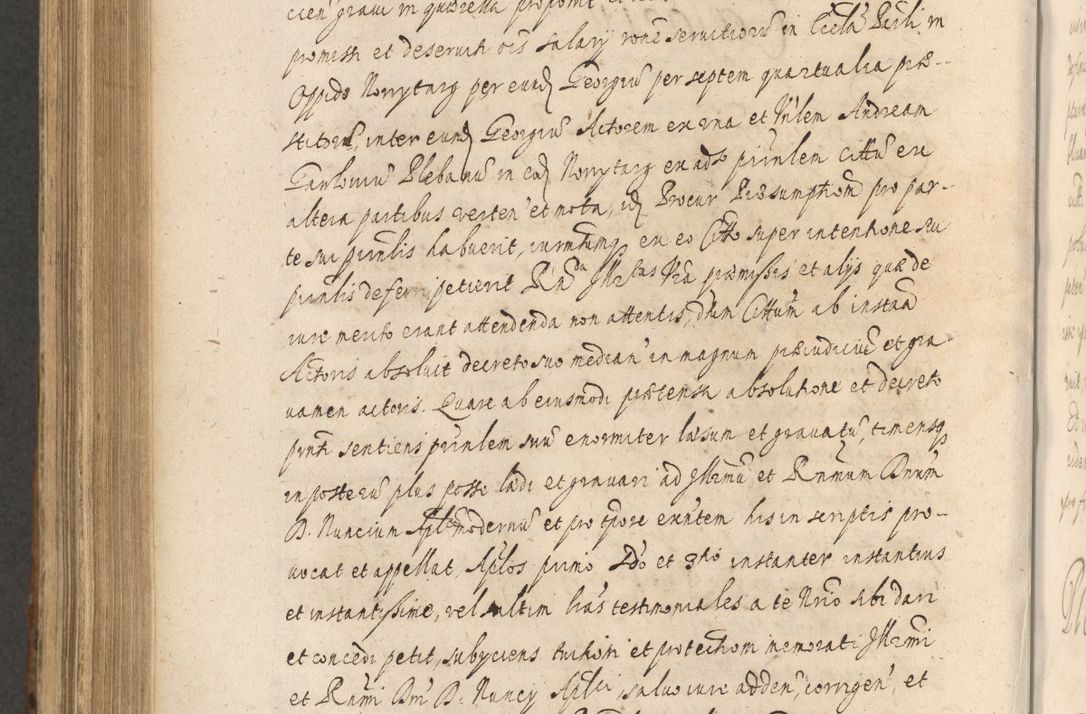 cien gravi in quærella proponit et
promissi et deservitı oĩs salarij rõne servitioru in Eccla Parli in
Oppido Nowytarg per eund Georgiu per septem quartualia præ-
stitoru, inter eund Georgiu Actorem ex una et Vnlem Andream
Plebanu in eod Nowytarg ex adso prinlem Cittu ex
altera partibus verten et mota, id Procur Præsumption pro par-
te sui prinlis habuerit, ex eo Citto super intentione sui
prinlis petierit Rñda Illtas Vra præmissis et alijs quæ de
iure merito erant attendenda non attentis, dtum Cittum ab instan
Actoris absolvit decreto suo median in magnum præiudiciu et gra-
vamen actoris. Quare ab eiusmodi prætensa absolutione et decreto
sentiens prinlem suu enormiter læsum et gravatu, timensq
in posteru plus posse lædi et gravari ad Illrmu et Rñmum Dnum
D. Nuncium Aplcu modernu et pro tpore exntem his in scriptis pro-
vocat et appellat, Aplos primo 2do et 3tio instanter instantius
et instantissime, vel saltim lras testimoniales a te Nrio sibi dari
et concedi petit, subyciens tuitioni et protectioni memorati Illrmi
et Rñmi Dni D. Nuncij Aplci, salvo iure adden, corrigen, et